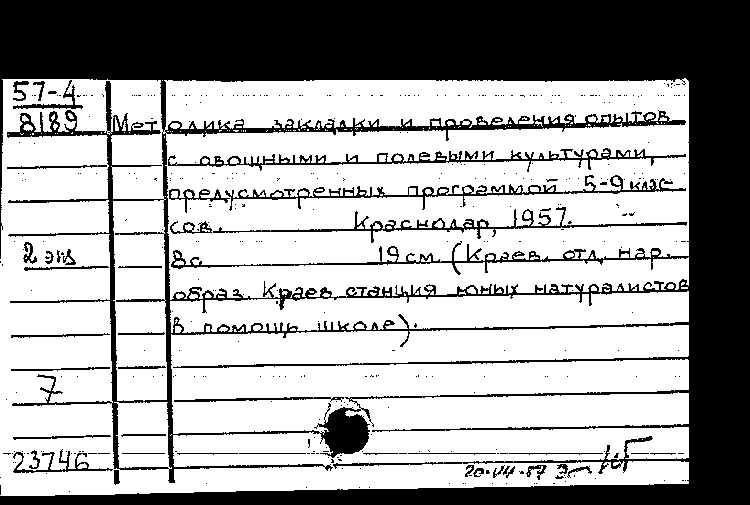 57-4
8189 Методика закладки и проведения опытов
с овощными и полевыми культурами,
предусмотренных программой 5-9 клас-
сов. Краснодар, 1957.
2 экз 8с 19 см. (Краев. отд. нар.
образ. Краев. станция юных натуралистов
в помощь школе).
7
23746
20.VII.57